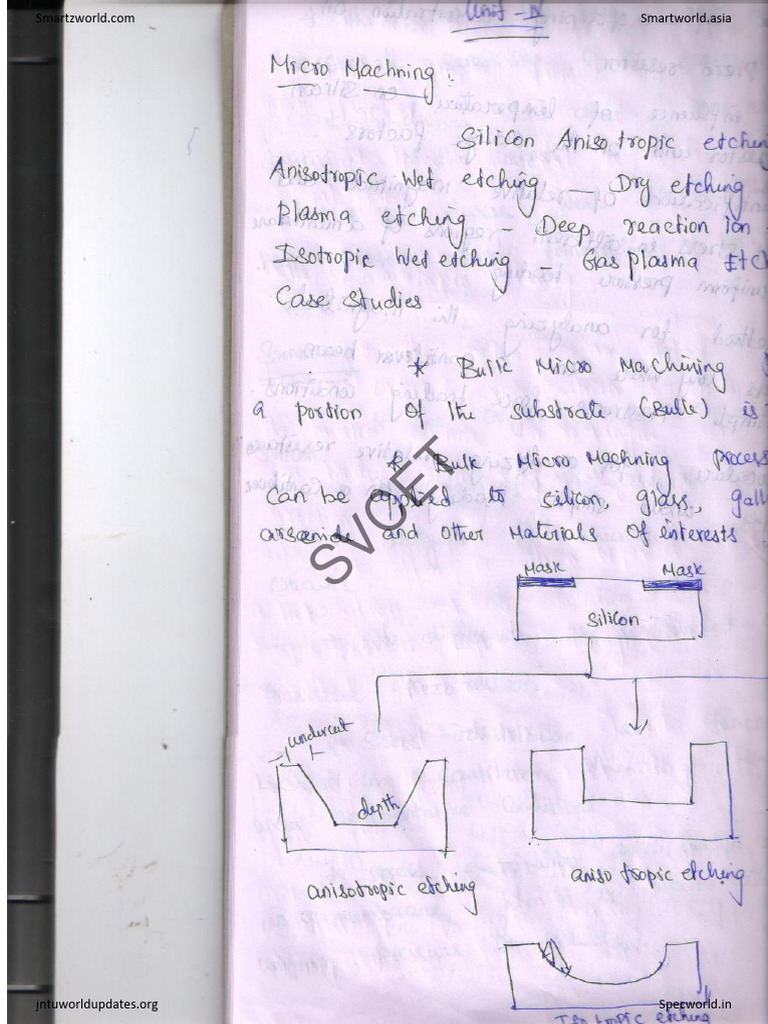 Smartzworld.com
Smartworld.asia
Unit - IV
Micro Machning :
Silicon Anisotropic etchin
Anisotropic Wet etching — Dry etching
Plasma etching — Deep reaction ion
Isotropic Wet etching — Gas plasma Etc
Case Studies
* Bulk Micro Machining
a portion of the substrate (Bulk) is
* Bulk Micro Machning process
can be applied to silicon, glass, gall
arsenide and other Materials of interests
SVCET
Mask
Mask
Silicon
undercut
depth
anisotropic etching
aniso tropic etching
Iso tropic etching
jntuworldupdates.org
Specworld.in